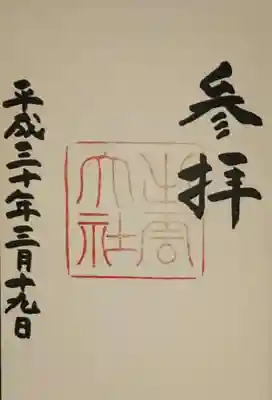 参拝
出雲
大社
平成三十年三月十九日